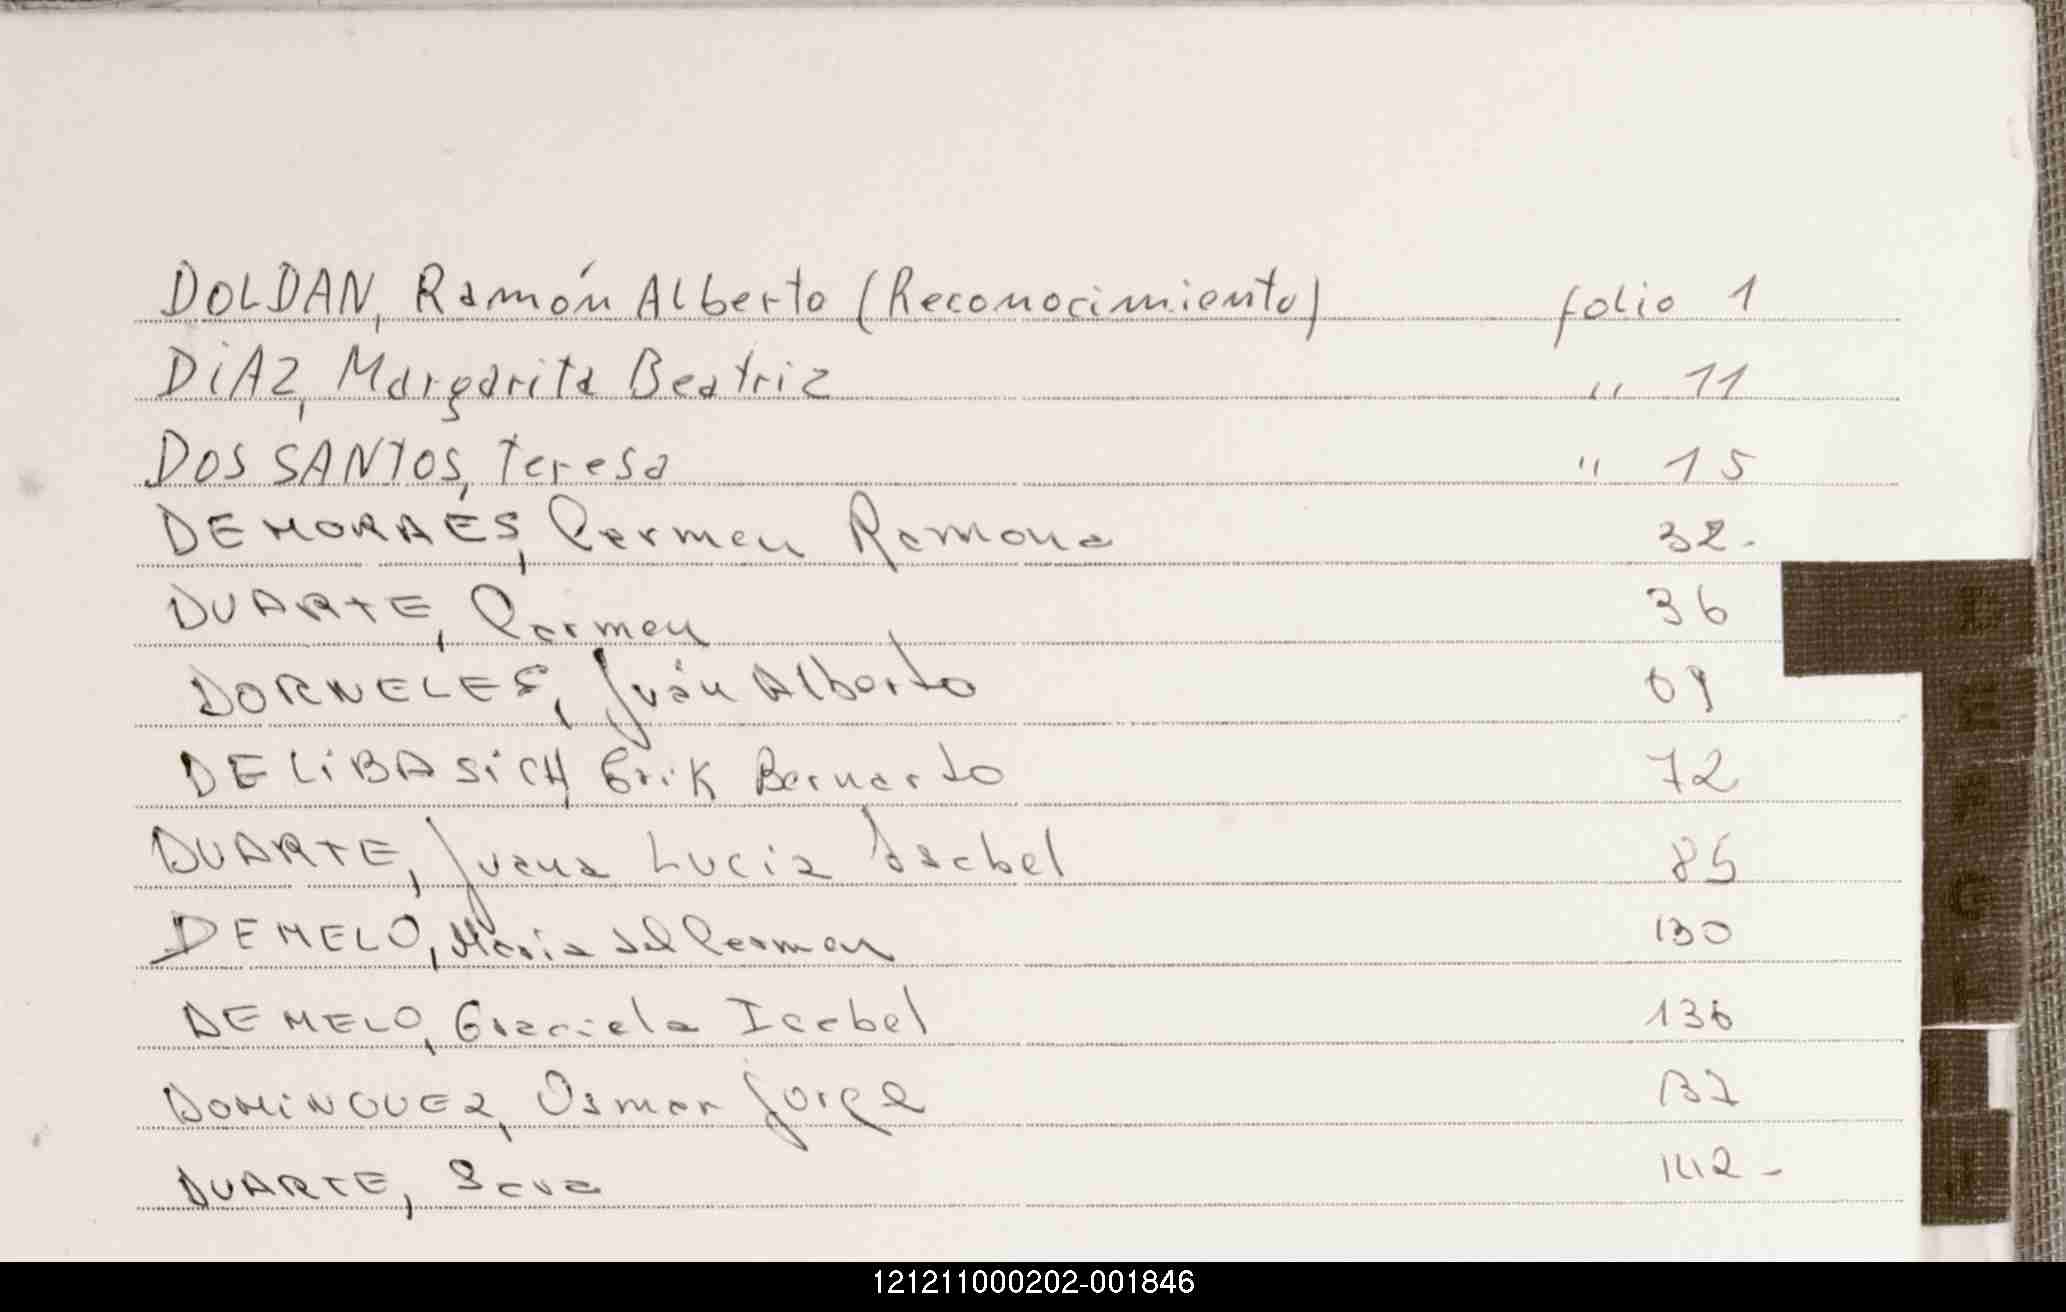 DOLDAN, Ramón Alberto (Reconocimiento) folio 1
DiAZ, Margarita Beatriz " 11
DOS SANTOS, Teresa " 15
DEMORAES, Carmen Ramona 32.
DUARTE, Carmen 36
DORNELES, Juán Alberto 69
DELiBASiCH, Erik Bernardo 72
DUARTE, Juana Lucia Isabel 85
DEMELO, Maria del Carmen 130
DEMELO, Graciela Isabel 136
DOMiNGUEZ, Osmar Jorge 137
DUARTE, 142-
D
E
F
G
121211000202-001846